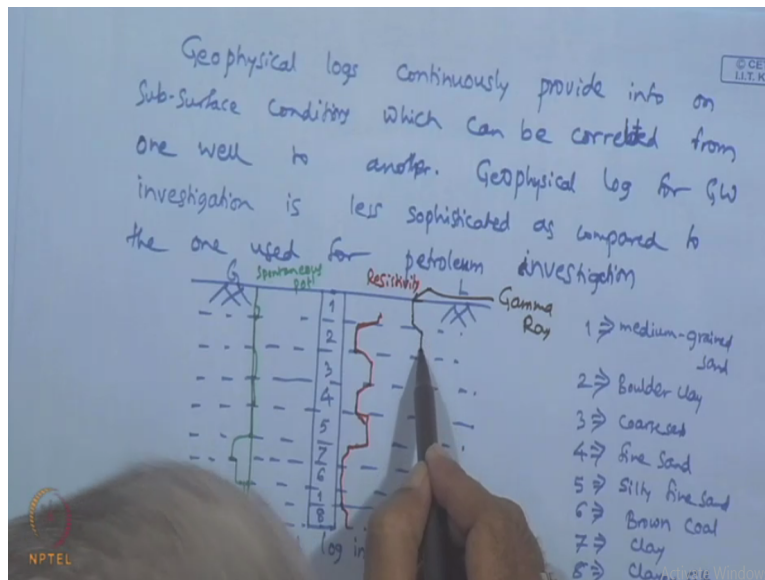 Geophysical logs continuously provide info on
Sub-Surface Conditions which can be correlated from
one well to another. Geophysical log for GW
investigation is less sophisticated as compared to
the one used for petroleum investigation
© CET
I.I.T. K
G
Spontaneous
potl
Resistivity
L
Gamma
Ray
1
2
3
4
5
7
6
1
8
1 ⇒ medium-grained
sand
2 ⇒ Boulder clay
3 ⇒ Coarse sad
4 ⇒ fine sand
5 ⇒ Silty fine sand
6 ⇒ Brown coal
7 ⇒ clay
8 ⇒ Clay
log in
NPTEL
Activate Window